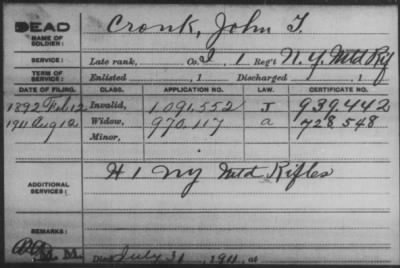 DEAD
NAME OF SOLDIER: Cronk, John T.
SERVICE: Late rank, Co. I, 1 Reg't N.Y. Mtd Rif
TERM OF SERVICE: Enlisted , 1 Discharged , 1
DATE OF FILING. CLASS. APPLICATION NO. LAW. CERTIFICATE NO.
1892 Feb. 12 Invalid, 1,091,552 J 939,442
1911 Aug 12 Widow, 970,117 a 728,548
Minor,
ADDITIONAL SERVICES: H 1 NY Mtd Rifles
REMARKS:
M. M. Died July 31, 1911, at